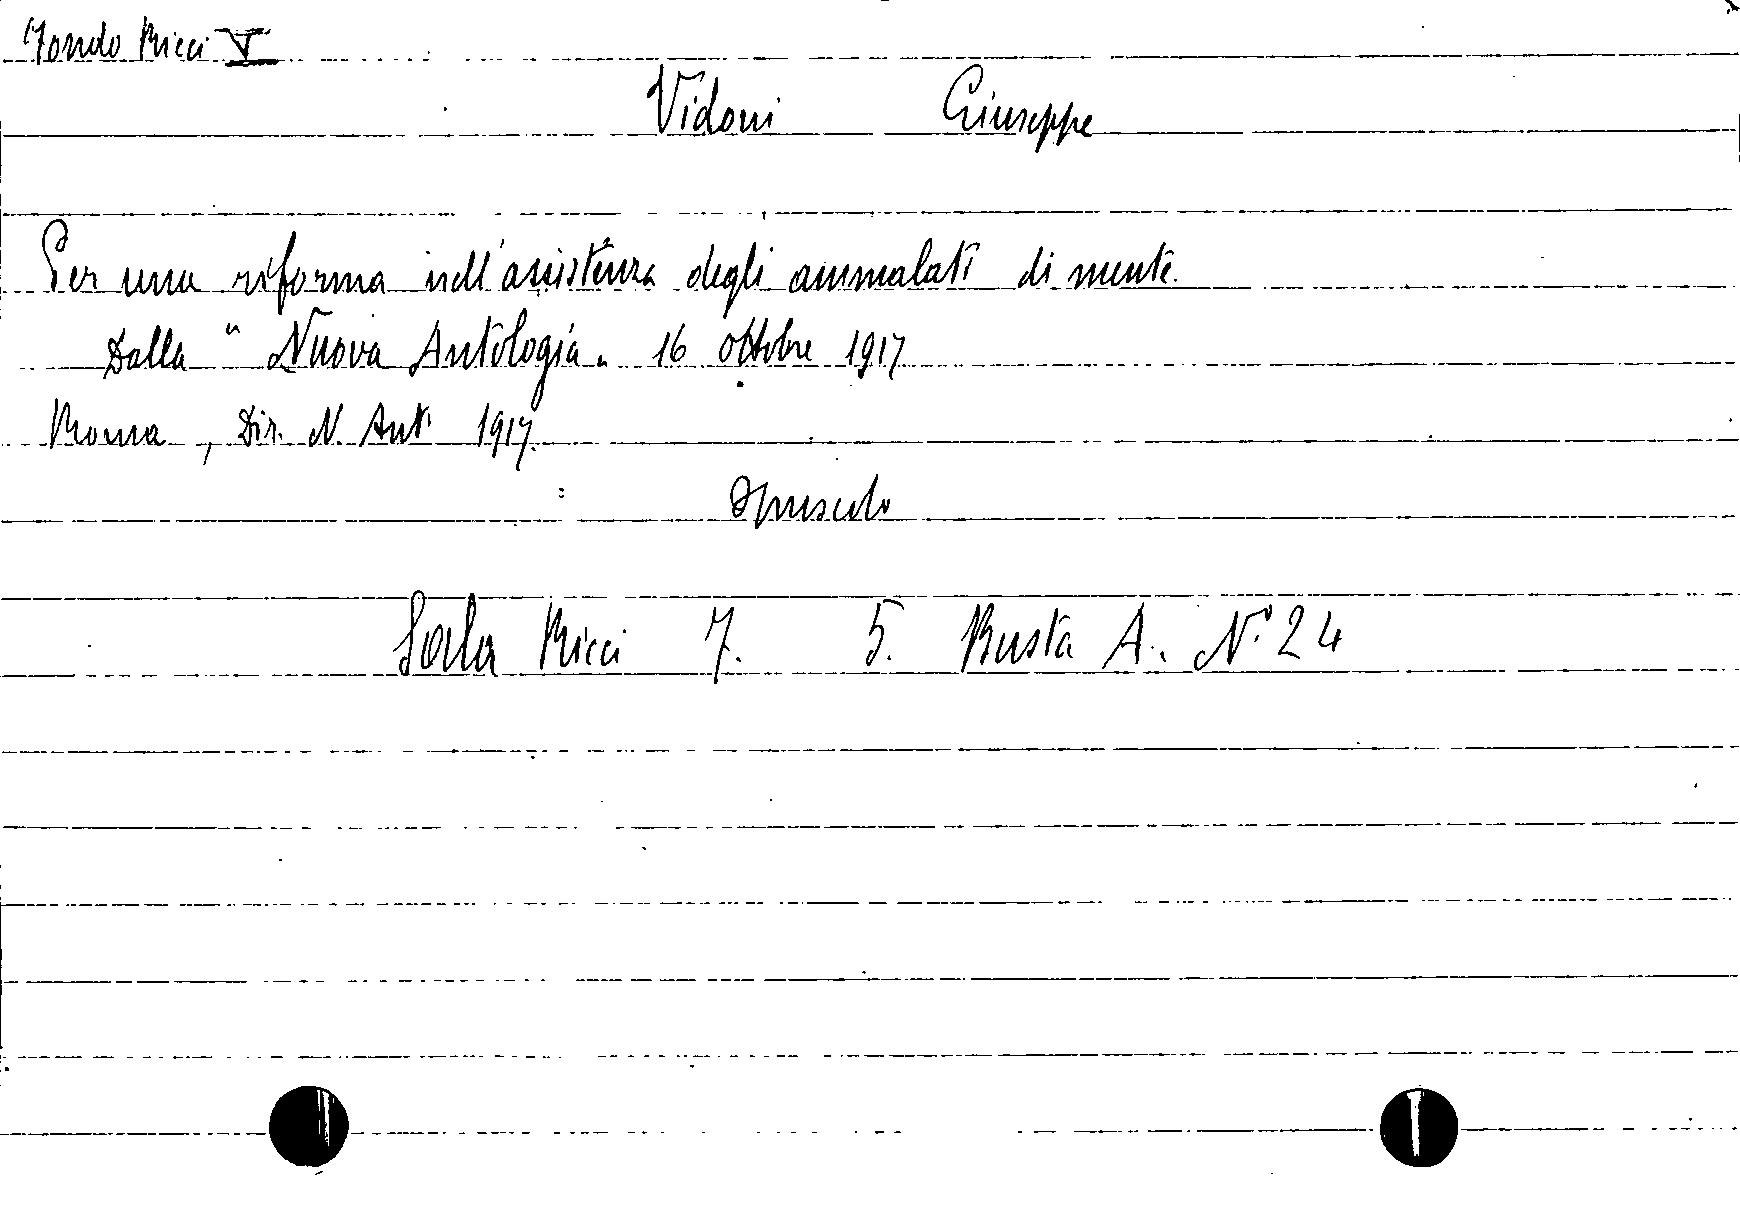 Fondo Ricci V
Vidoni Giuseppe
Per una riforma nell'assistenza degli ammalati di mente.
Dalla "Nuova Antologia" 16 ottobre 1917
Roma, Dir. N. Ant. 1917.
Opuscolo
Sala Ricci 7. 5. Busta A. N° 24